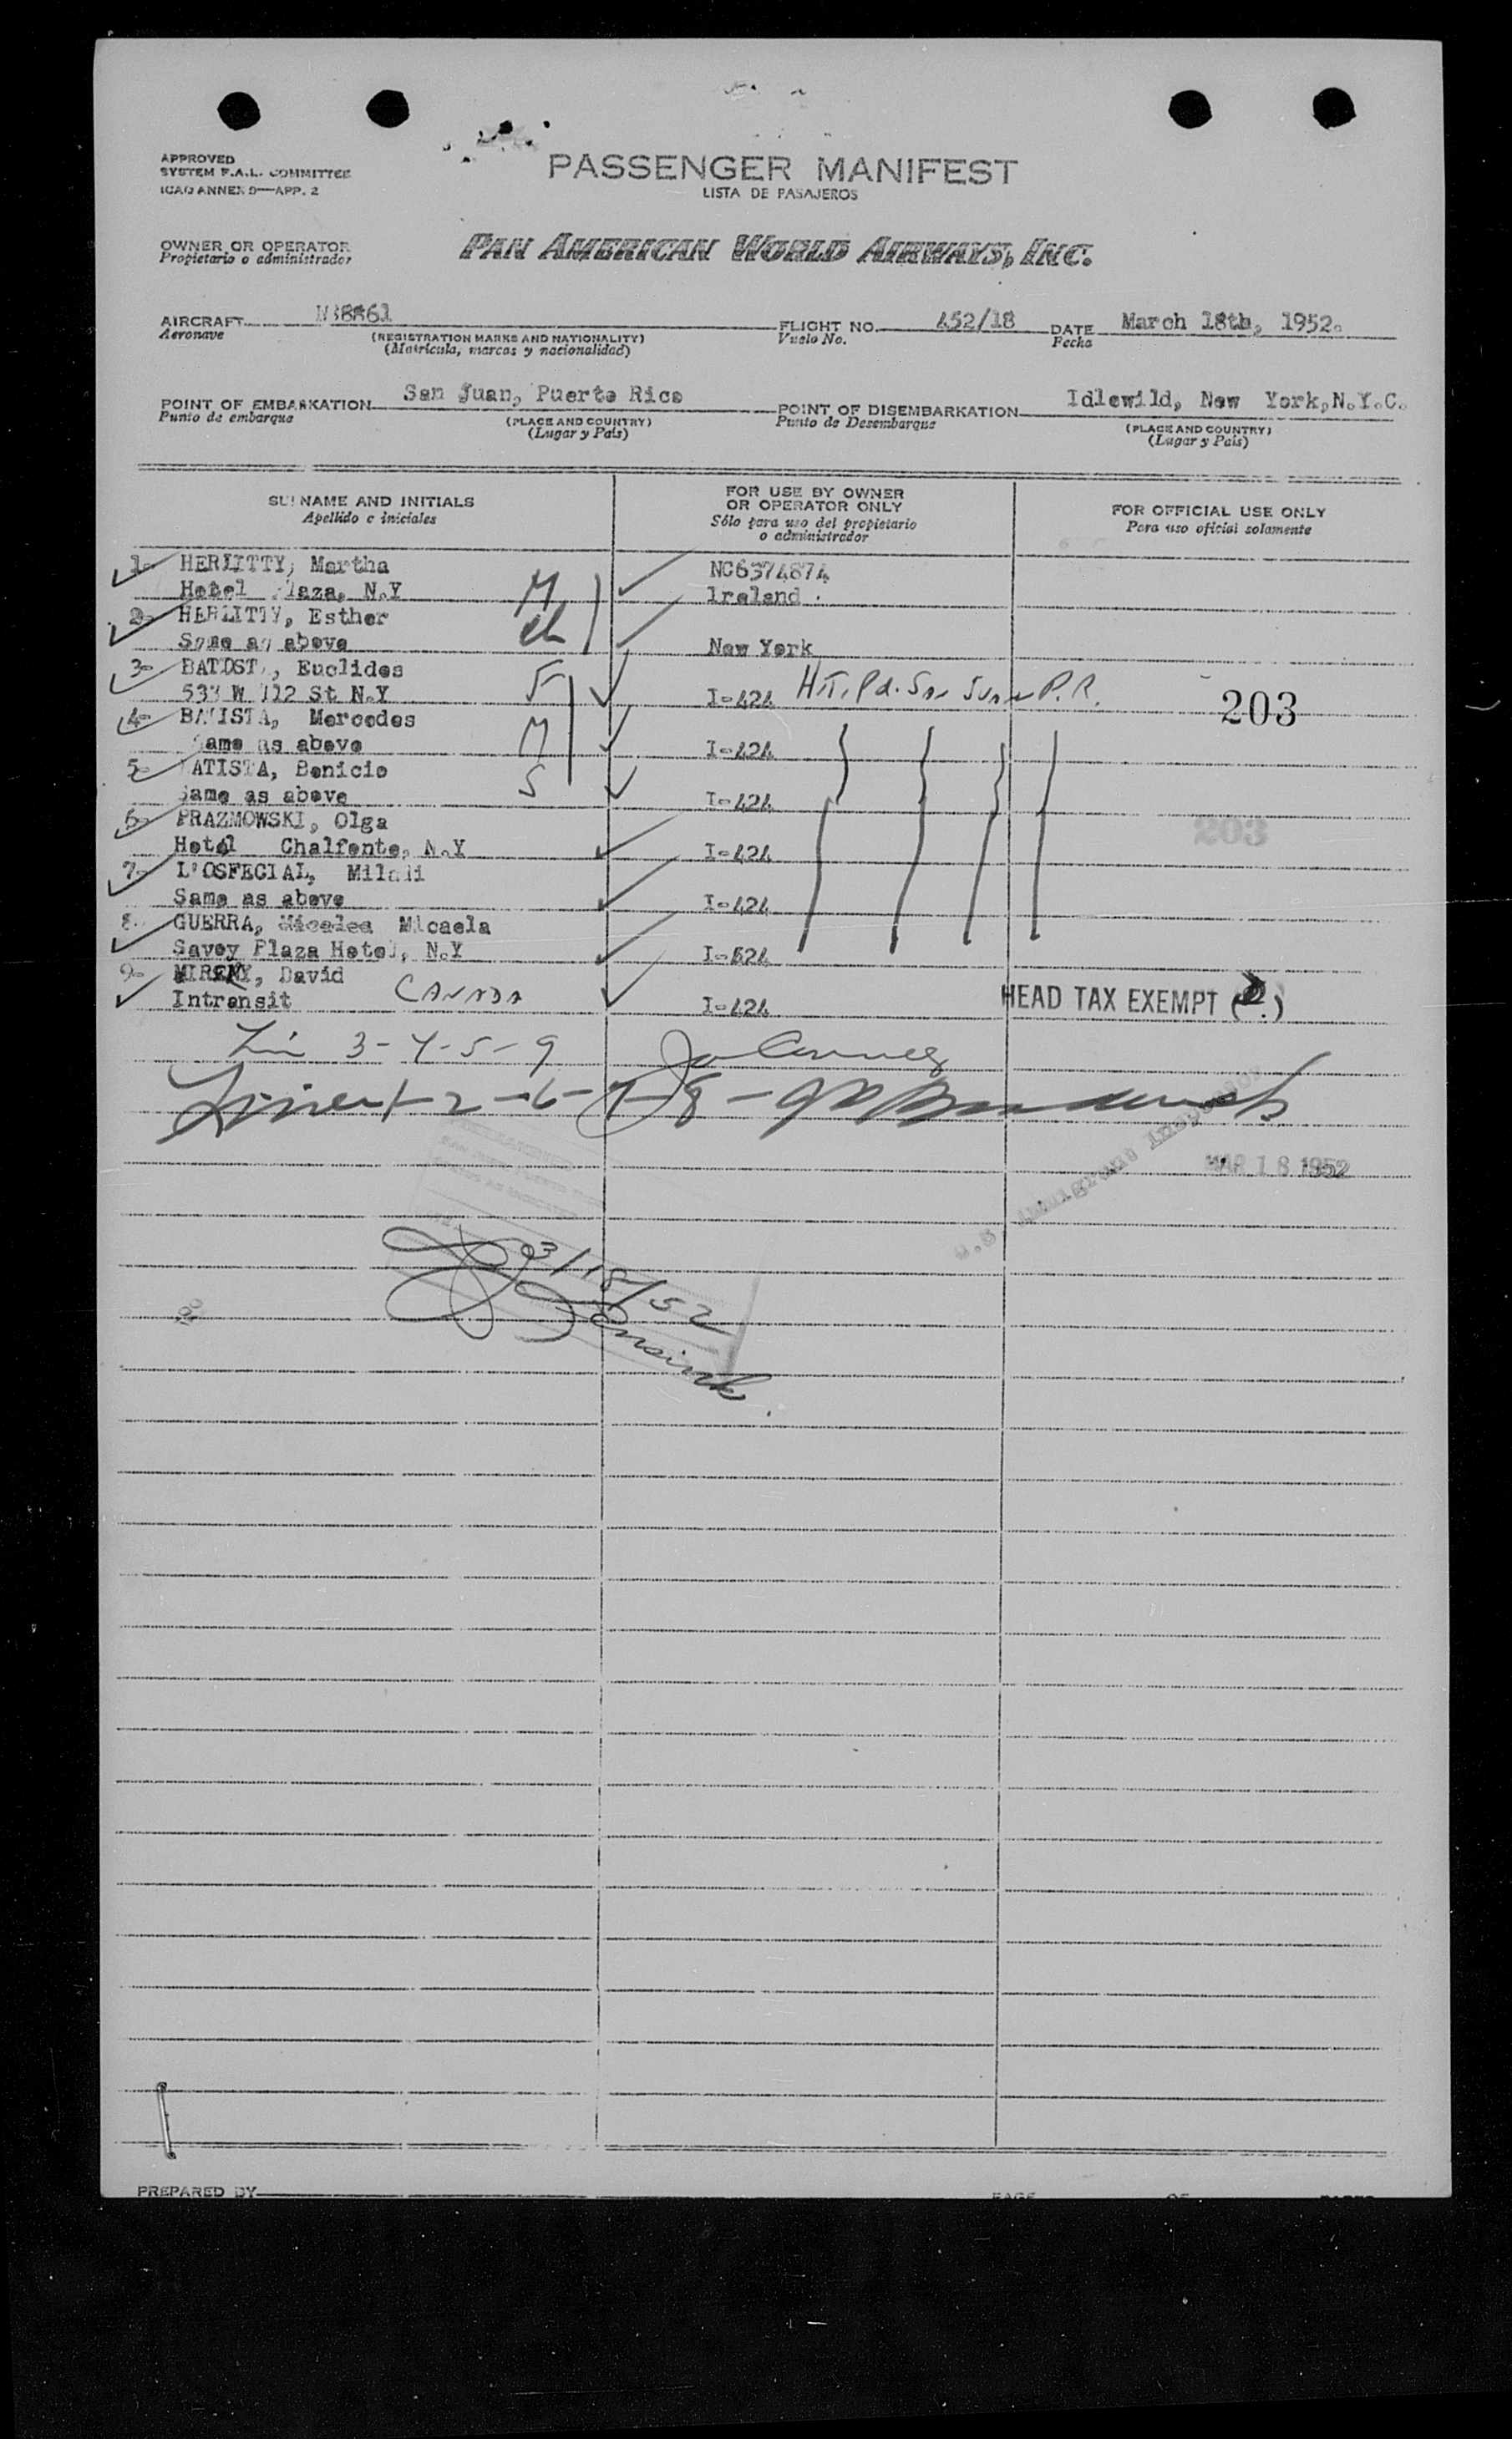 APPROVED
SYSTEM F.A.L. COMMITTEE
ICAO ANNEX 9—APP. 2
PASSENGER MANIFEST
LISTA DE PASAJEROS
OWNER OR OPERATOR
Propietario o administrador
PAN AMERICAN WORLD AIRWAYS, INC.
AIRCRAFT
Aeronave
(REGISTRATION MARKS AND NATIONALITY)
(Matrícula, marcas y nacionalidad)
FLIGHT NO. 452/18 DATE March 18th, 1952.
Vuelo No. Fecha
POINT OF EMBARKATION San Juan, Puerto Rico
Punto de embarque
(PLACE AND COUNTRY)
(Lugar y País)
POINT OF DISEMBARKATION Idlewild, New York, N.Y.C.
Punto de Desembarque
(PLACE AND COUNTRY)
(Lugar y País)
SURNAME AND INITIALS
Apellido e iniciales
FOR USE BY OWNER
OR OPERATOR ONLY
Sólo para uso del propietario
o administrador
FOR OFFICIAL USE ONLY
Para uso oficial solamente
1- HERLITTY, Martha NC6374874
Hotel Plaza, N.Y M Ireland
2- HERLITTY, Esther
Same as above New York
3- Euclides
W 112 St N.Y I-424 H.T. Pd. San Juan P.R. 203
4- BATISTA, Mercedes
Same as above M I-424
5- BATISTA, Benicio
Same as above S I-424
6- PRAZMOWSKI, Olga 203
Hotel Chalfonte, N.Y I-424
7- L'OSPECIAL,
Same as above I-424
8- GUERRA, Micaela
Savoy Plaza Hotel, N.Y I-424
9- David
Intransit CANADA I-424 HEAD TAX EXEMPT
3-4-5-9
2-6-7-8-
U.S. Immigrant Inspector
MAR 18 1952
3/18/52
PREPARED BY
PAGE OF PAGES